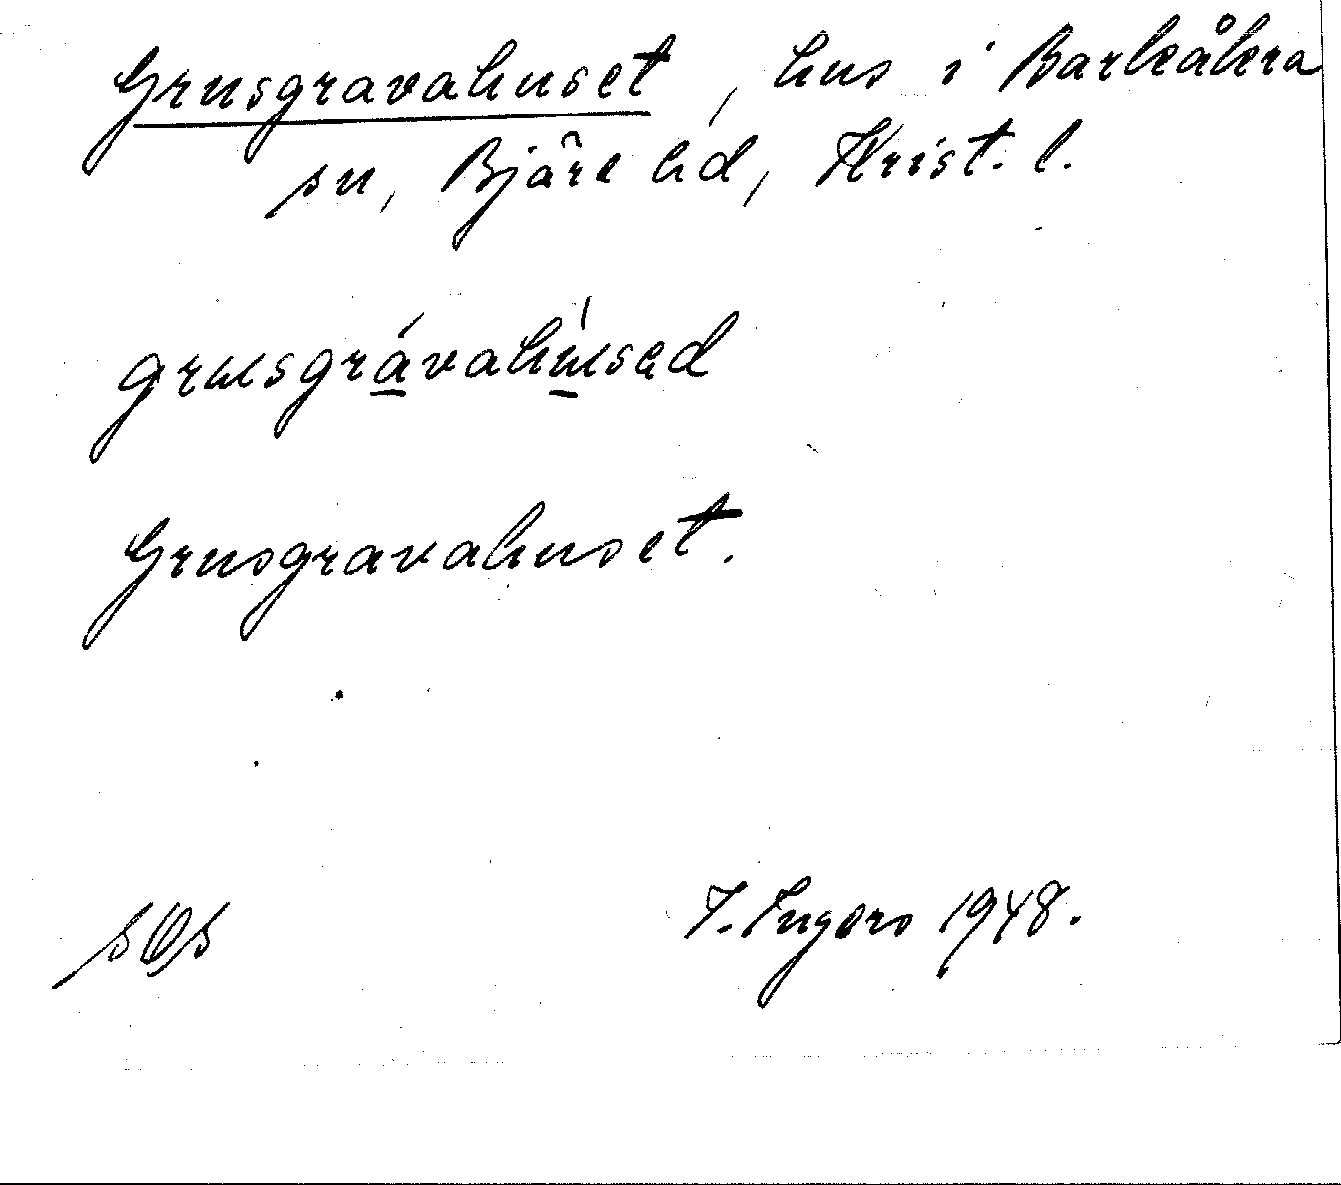 Grusgravahuset, hus i Barkåkra
sn, Bjäre hd, Krist. l.
grusgrávahu̍sed
Grusgravahuset.
I. Ingers 1948.